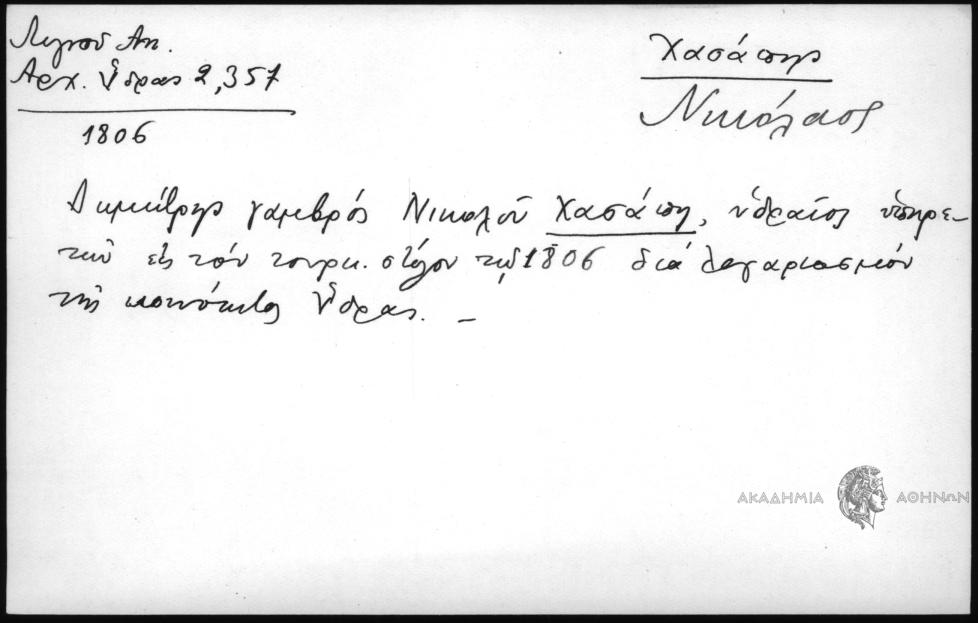 Λιγνοῦ Αν.
Ἀρχ. Ὕδρας 2,357
1806
Χασάπης
Νικόλαος
Δημήτρης γαμβρός Νικολοῦ Χασάπη, ὑδραῖος ὑπηρε-
τεῖ εἰς τόν τουρκ. στόλον τῷ 1806 διά λογαριασμόν
τῆς κοινότητος Ὕδρας. –
ΑΚΑΔΗΜΙΑ ΑΘΗΝΩΝ